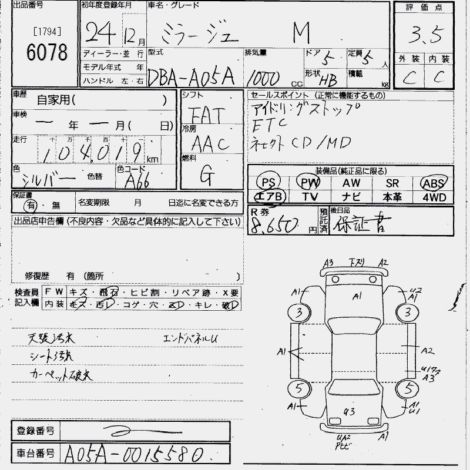 出品番号
[1794]
6078
初年度登録年月
24年12月
車名・グレード
ミラージュ M
評価点
3.5
外装 内装
C C
ディーラー・並行
モデル年式 年
ハンドル 左・右
型式
DBA-A05A
排気量
1000 CC
ドア 5
定員 5人
形状 HB
積載 kg
車歴 自家用( )
車検 ー年ー月(ー日)
走行 十万 万 千 百 十
104,019km
色 シルバー
色替
カラーコード A66
シフト FAT
冷房 AAC
燃料 G
セールスポイント(正常に機能するもの)
アイドリングストップ
ETC
CD/MD
装備品(純正品に限る)
PS PW AW SR ABS
エアB TV ナビ 本革 4WD
保証書
有・無
名変期限 月 日迄に名変できる方
R券 8,650円
預託済
後日品 保証書
出品店申告欄(不良内容・欠品など具体的に記入して下さい)
修復歴 有(箇所 )
検査員記入欄
FW キズ・飛石・ヒビ割・リペア跡・X要
内装 キズ・汚レ・コゲ・穴・ヌレ・キレ・破レ
天張汚れ エンドパネルU
シート汚れ
カーペット破れ
A3 下スリ A2
A1 U2 A1
3 3
A1 A2
U177 A3
5 5
A1 U3 A1 U1
UA2 Pアリ
登録番号
車台番号 A05A-0015580